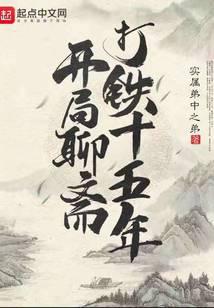 起点中文网
www.qidian.com
开局聊斋
打铁十五年
实属弟中之弟 著